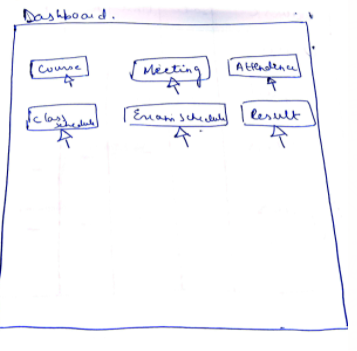 Dashboard.
Course
Meeting
Attendence
Class
schedule
Exam Schedule
Result